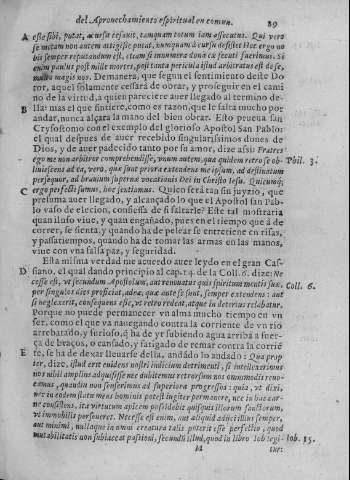 del Aprouechamiento espiritual en comun. 89
A este sibi, putat, à cursu cessauit, tamquam totum iam assecutus. Qui vero
se metam non attigisse putat, numquam à cursu desistet Hoc ergo no
bis semper reputandum est, etiam si innumera bona ex secuti fuerimus. Si
enim Paulus post mille mortes, post tanta pericula illud arbitratus est de se,
multo magis nos. Demanera, que segun el sentimiento deste Do
tor, aquel solamente cessarà de obrar, y proseguir en el cami
no de la virtud, a quien pareciere auer llegado al termino de-
B lla: mas el que sintiere, como es razon, que le falta mucho por
andar, nunca alçara la mano del bien obrar. Esto prueua san
Crysostomo con el exemplo del glorioso Apostol San Pablo:
el qual despues de auer recebido singularissimos dones de
Dios, y de auer padecido tanto por su amor, dize assi: Fratres
ego me non arbitror comprehendisse, vnum autem, quæ quidem retro se ob- Phil. 3.
liuiscens ad ea, verò, quæ sunt priora extendens me ipsum, ad destinatum
persequor, ad brauium supernæ vocationis Dei in Christo Iesu. Quicumq;
C ergo perfecti sumus, hoc sentiamus. Quien serà tan sin juyzio, que
presuma auer llegado, y alcançado lo que el Apostol san Pab-
lo vaso de eleccion, confiessa de si faltarle? Este tal mostraria
quan iluso viue, y quan engañado, pues en el tiempo que à de
correr, se sienta, y quando ha de pelear se entretiene en risas,
y passatiempos, quando ha de tomar las armas en las manos,
viue con vna falsa paz, y seguridad.
Esta misma verdad me acuerdo auer leydo en el gran Cas-
D siano, el qual dando principio al cap. 14. de la Coll. 6. dize: Ne
cesse est, vt secundum Apostolum, aut renouatus quis spiritu mentis suæ, Coll. 6.
per singulos dies proficiat, ad ea, quæ ante se sunt, semper extendens: aut
si neglexerit, consequens est, vt retro redeat, atque in deterius relabatur.
Porque no puede permanecer vn alma mucho tiempo en vn
ser, como el que va nauegando contra la corriente de vn rio
arrebatado, y furioso, q̃ ha de yr subiendo agua arriba a fuer-
ça de braços, o cansado, y fatigado de remar contra la corriē
E te, se ha de dexar lleuar se della, andādo lo andado: Quapropter
ter, dize, istud erit euidens nostri indicium detrimenti, si intellexerimus
nos nihil amplius adquisisse nec dubitemus retrorsum nos omnimodis reuo-
camus, quando nos senserimus ad superiora progressos: quia, vt dixi,
nec in eodem statu mens hominis potest iugiter permanere, nec in hac car-
ne consistens, ita virtutum apicem possidebit quisquis illorum sanctorum,
vt immobilis perseueret. Necesse est enim, aut aliquid adijci illis semper,
aut minui, nullaque in omni creatura talis poterit esse perfectio, quod
mutabilitatis non subiaceat passioni, secundū illud, quod in libro Iob legi- Iob. 15.
M tur: